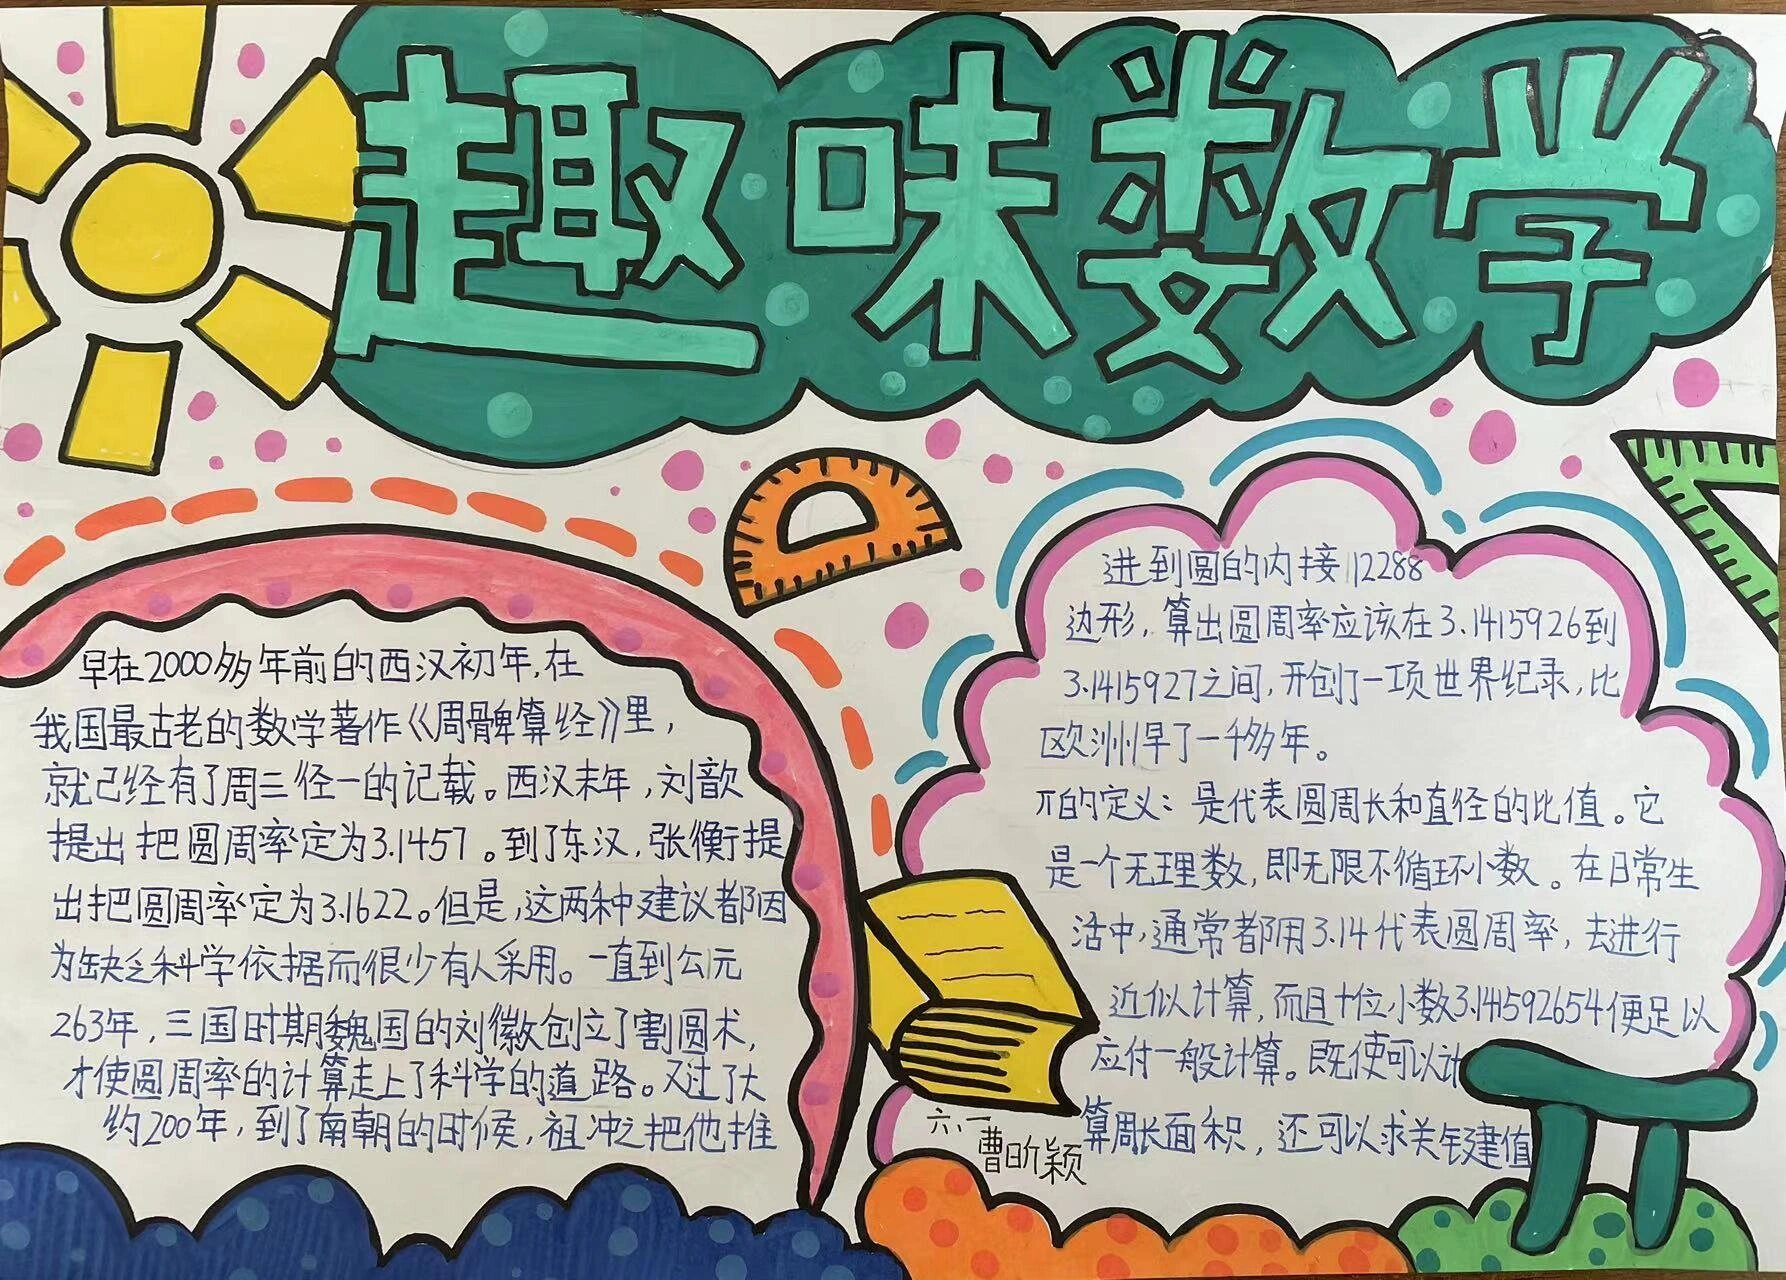 趣味数学
早在2000多年前的西汉初年,在
我国最古老的数学著作《周髀算经》里，
就已经有了周三径一的记载。西汉末年，刘歆
提出把圆周率定为3.1457。到了东汉，张衡提
出把圆周率定为3.1622。但是，这两种建议都因
为缺乏科学依据而很少有人采用。一直到公元
263年，三国时期魏国的刘徽创立了割圆术，
才使圆周率的计算走上了科学的道路。又过了大
约200年，到了南朝的时候，祖冲之把他推
进到圆的内接12288
边形，算出圆周率应该在3.1415926到
3.1415927之间，开创了一项世界纪录，比
欧洲早了一千多年。
π的定义：是代表圆周长和直径的比值。它
是一个无理数，即无限不循环小数。在日常生
活中，通常都用3.14代表圆周率，去进行
近似计算，而且十位小数3.141592654便足以
应付一般计算。既使可以计
算周长面积，还可以求关键值
六、一
曹昕颖